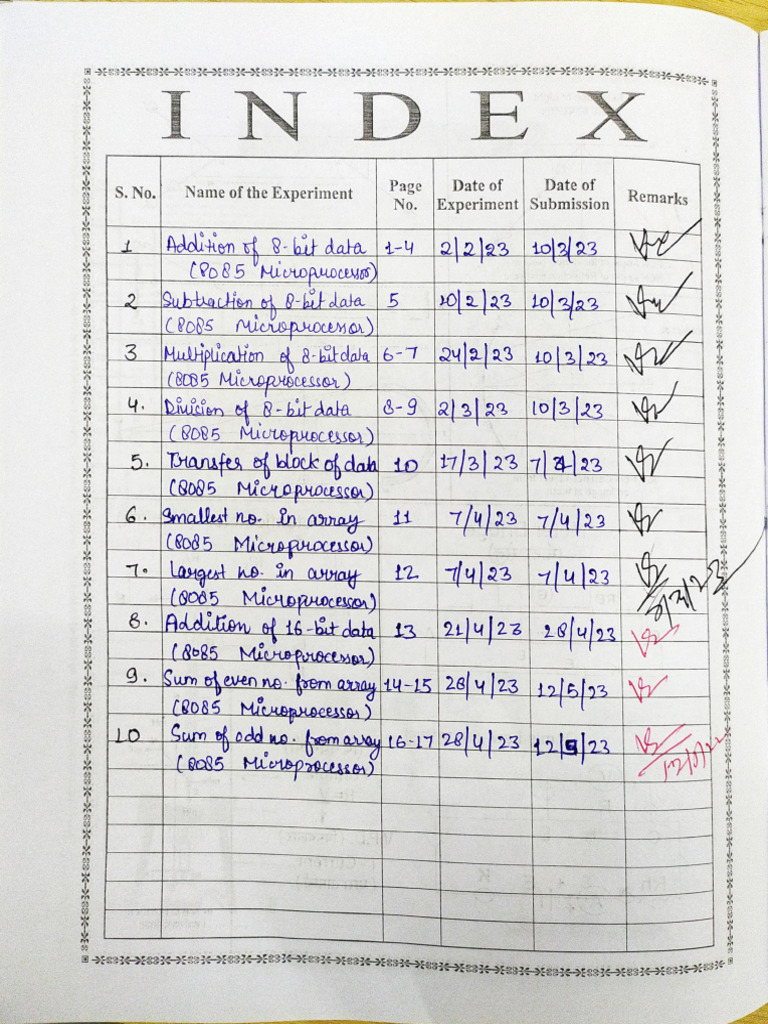 INDEX
S. No. Name of the Experiment Page No. Date of Experiment Date of Submission Remarks
1 Addition of 8-bit data 1-4 2/2/23 10/3/23
(8085 Microprocessor)
2 Subtraction of 8-bit data 5 10/2/23 10/3/23
(8085 Microprocessor)
3 Multiplication of 8-bit data 6-7 24/2/23 10/3/23
(8085 Microprocessor)
4. Division of 8-bit data 8-9 2/3/23 10/3/23
(8085 Microprocessor)
5. Transfer of block of data 10 17/3/23 7/4/23
(8085 Microprocessor)
6. Smallest no. in array 11 7/4/23 7/4/23
(8085 Microprocessor)
7. Largest no. in array 12 7/4/23 7/4/23
(8085 Microprocessor)
8. Addition of 16-bit data 13 21/4/23 28/4/23
(8085 Microprocessor)
9. Sum of even no. from array 14-15 28/4/23 12/5/23
(8085 Microprocessor)
10 Sum of odd no. from array 16-17 28/4/23 12/5/23
(8085 Microprocessor)